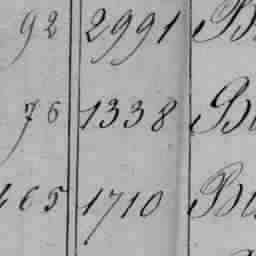 92 2991 B
76 1338 B
65 1710 B